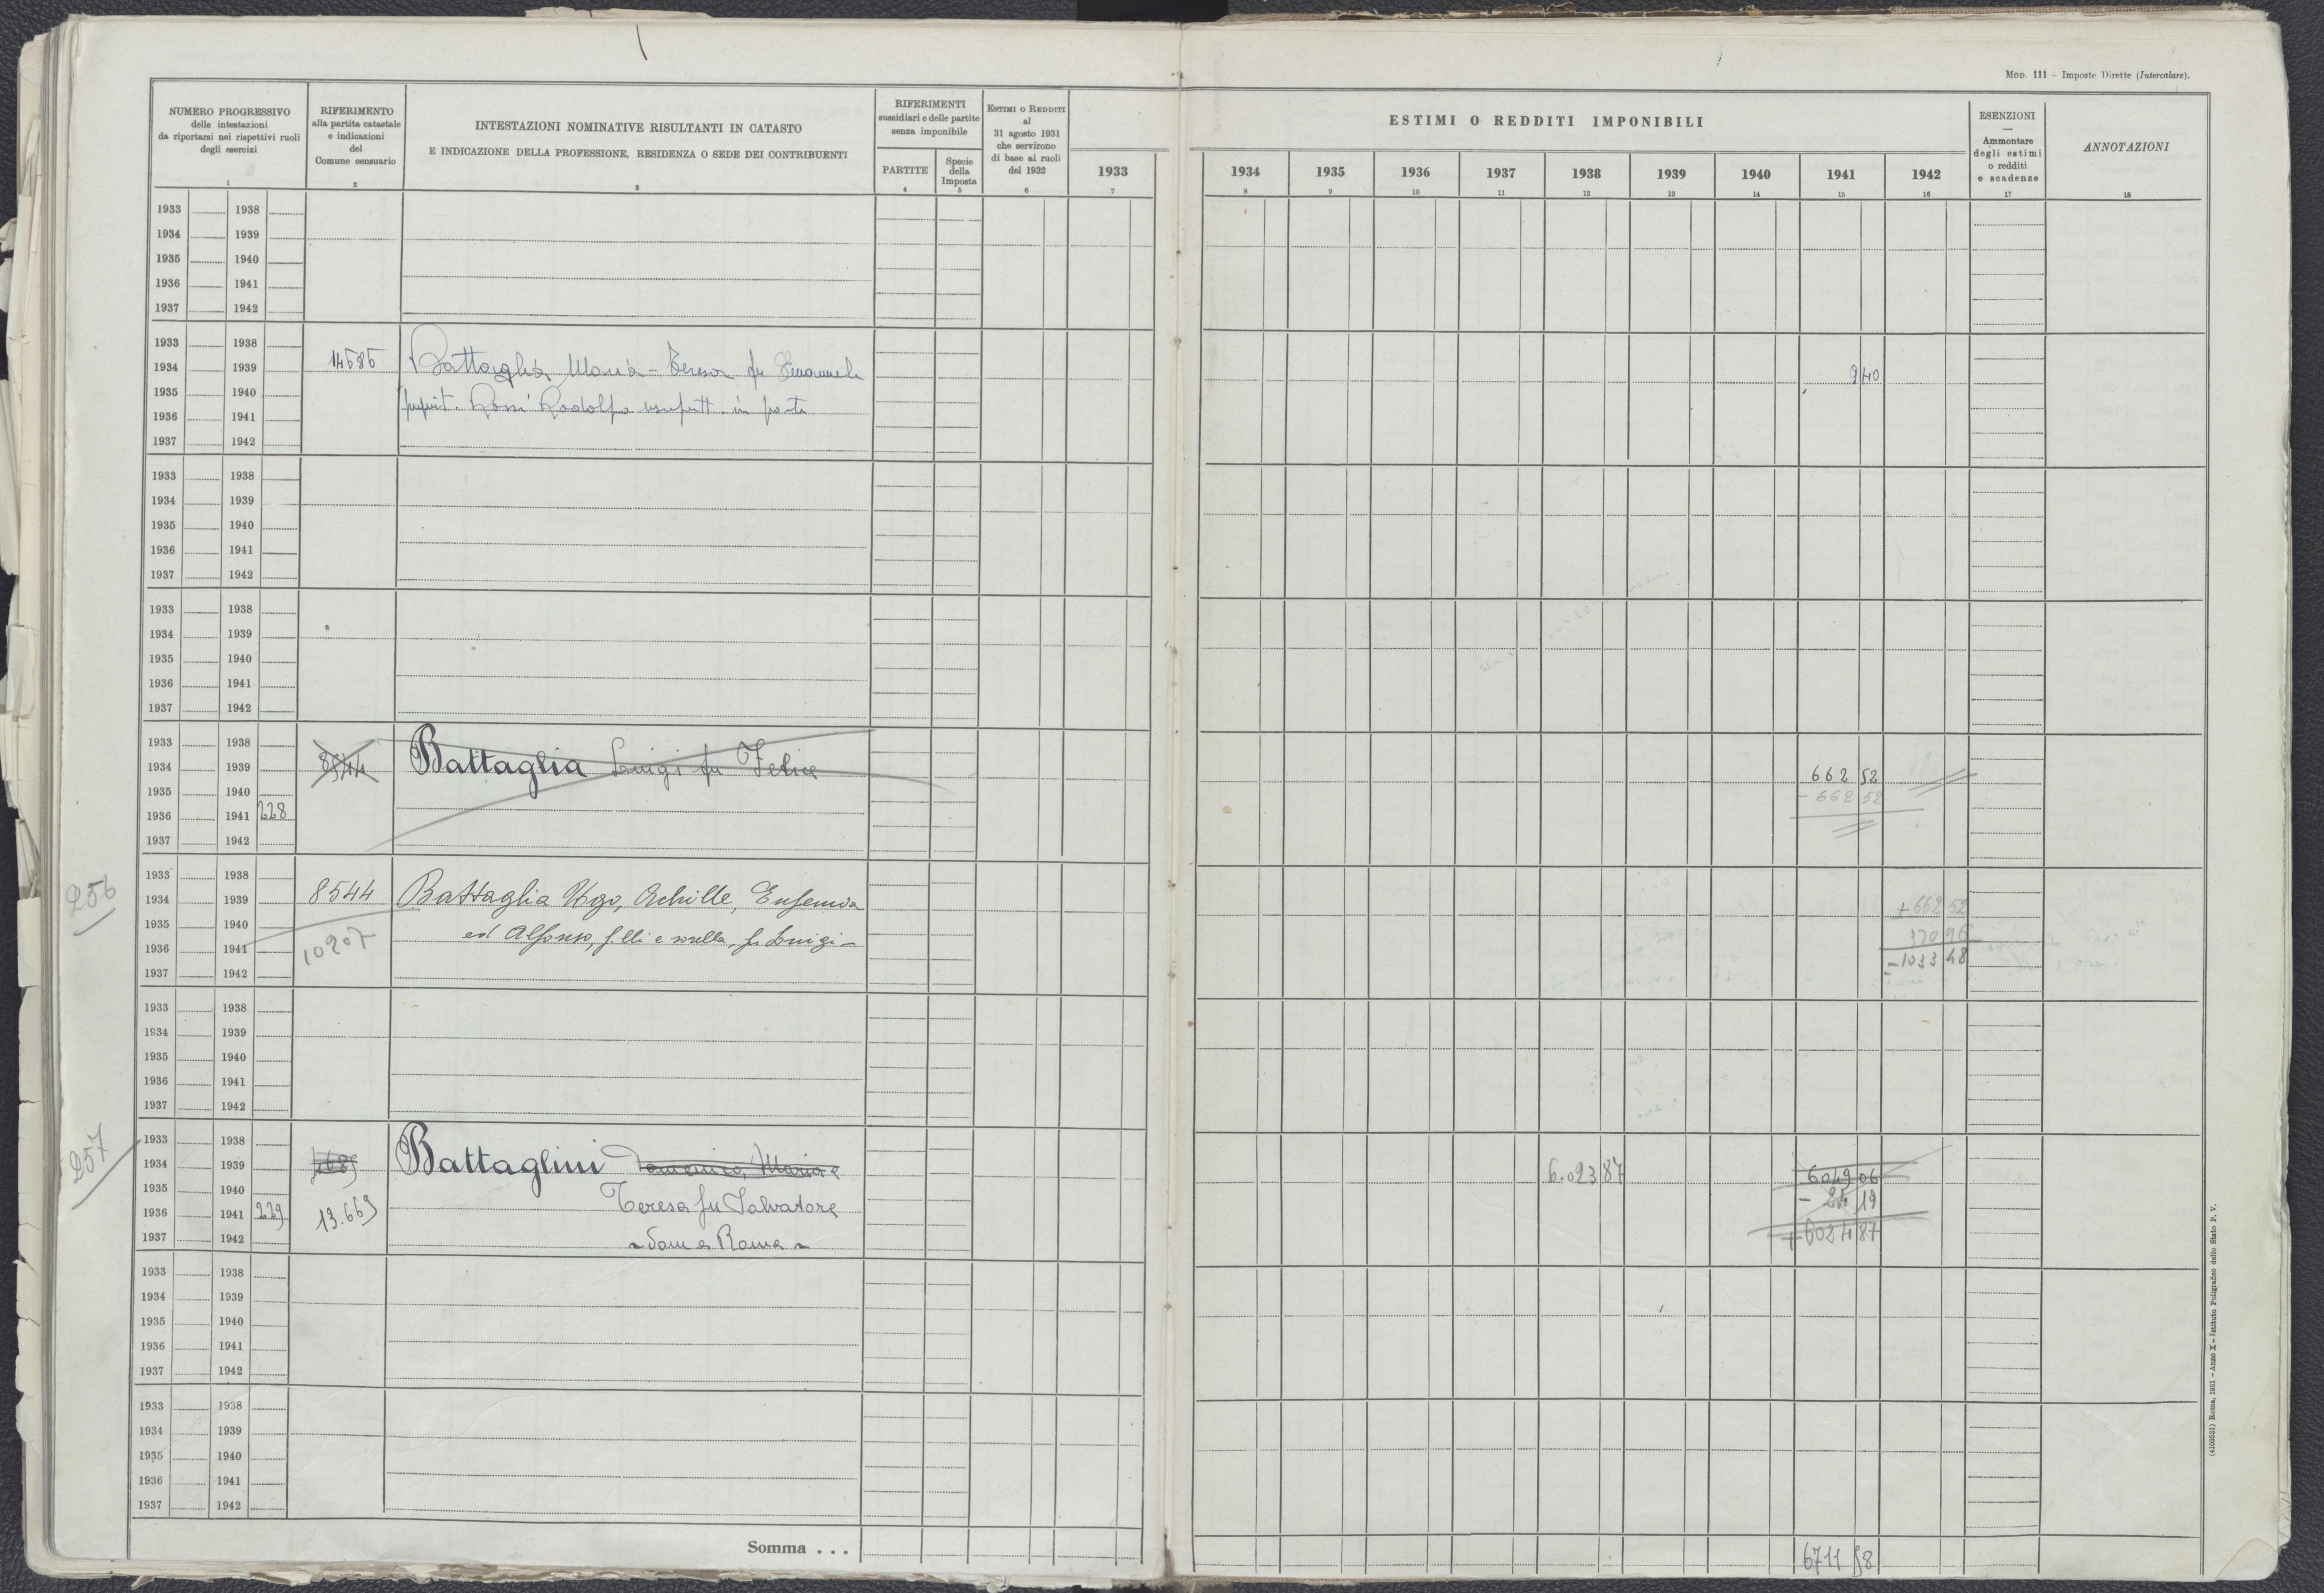 MOD. 111 – Imposte Dirette (Intercalare).
NUMERO PROGRESSIVO
delle intestazioni
da riportarsi nei rispettivi ruoli
degli esercizi
1
RIFERIMENTO
alla partita catastale
e indicazioni
del
Comune censuario
2
INTESTAZIONI NOMINATIVE RISULTANTI IN CATASTO
E INDICAZIONE DELLA PROFESSIONE, RESIDENZA O SEDE DEI CONTRIBUENTI
3
RIFERIMENTI
sussidiari e delle partite
senza imponibile
PARTITE
4
Specie
della
Imposta
5
ESTIMI O REDDITI
al
31 agosto 1931
che servirono
di base ai ruoli
del 1932
6
ESTIMI O REDDITI IMPONIBILI
1933 1934 1935 1936 1937 1938 1939 1940 1941 1942
7 8 9 10 11 12 13 14 15 16
ESENZIONI
—
Ammontare
degli estimi
o redditi
e scadenze
17
ANNOTAZIONI
18
1933 1938
1934 1939
1935 1940
1936 1941
1937 1942
1933 1938
1934 1939 14585 Battaglia Maria-Teresa fu Emanuele 2 40
1935 1940 Rossi Rodolfo usufrutt. in parte
1936 1941
1937 1942
1933 1938
1934 1939
1935 1940
1936 1941
1937 1942
1933 1938
1934 1939
1935 1940
1936 1941
1937 1942
1933 1938
1934 1939 8544 Battaglia Luigi fu Felice 662 52
1935 1940 - 662 52
1936 1941 228
1937 1942
1933 1938
256 1934 1939 8544 Battaglia Ugo, Achille, Eufemia + 662 52
1935 1940 ed Alfonso, f.lli e sorella, fu Luigi – 370 96
1936 1941 10207 - 1033 48
1937 1942
1933 1938
1934 1939
1935 1940
1936 1941
1937 1942
257 1933 1938
1934 1939 Battaglini Domenico, Maria e 6.023 87 6049 06
1935 1940 Teresa fu Salvatore - 24 19
1936 1941 229 13.669 + 6024 87
1937 1942 – dom a Roma –
1933 1938
1934 1939
1935 1940
1936 1941
1937 1942
1933 1938
1934 1939
1935 1940
1936 1941
1937 1942
Somma . . . 6711 58
(4103531) Roma, 1931 – Anno X – Istituto Poligrafico dello Stato P. V.